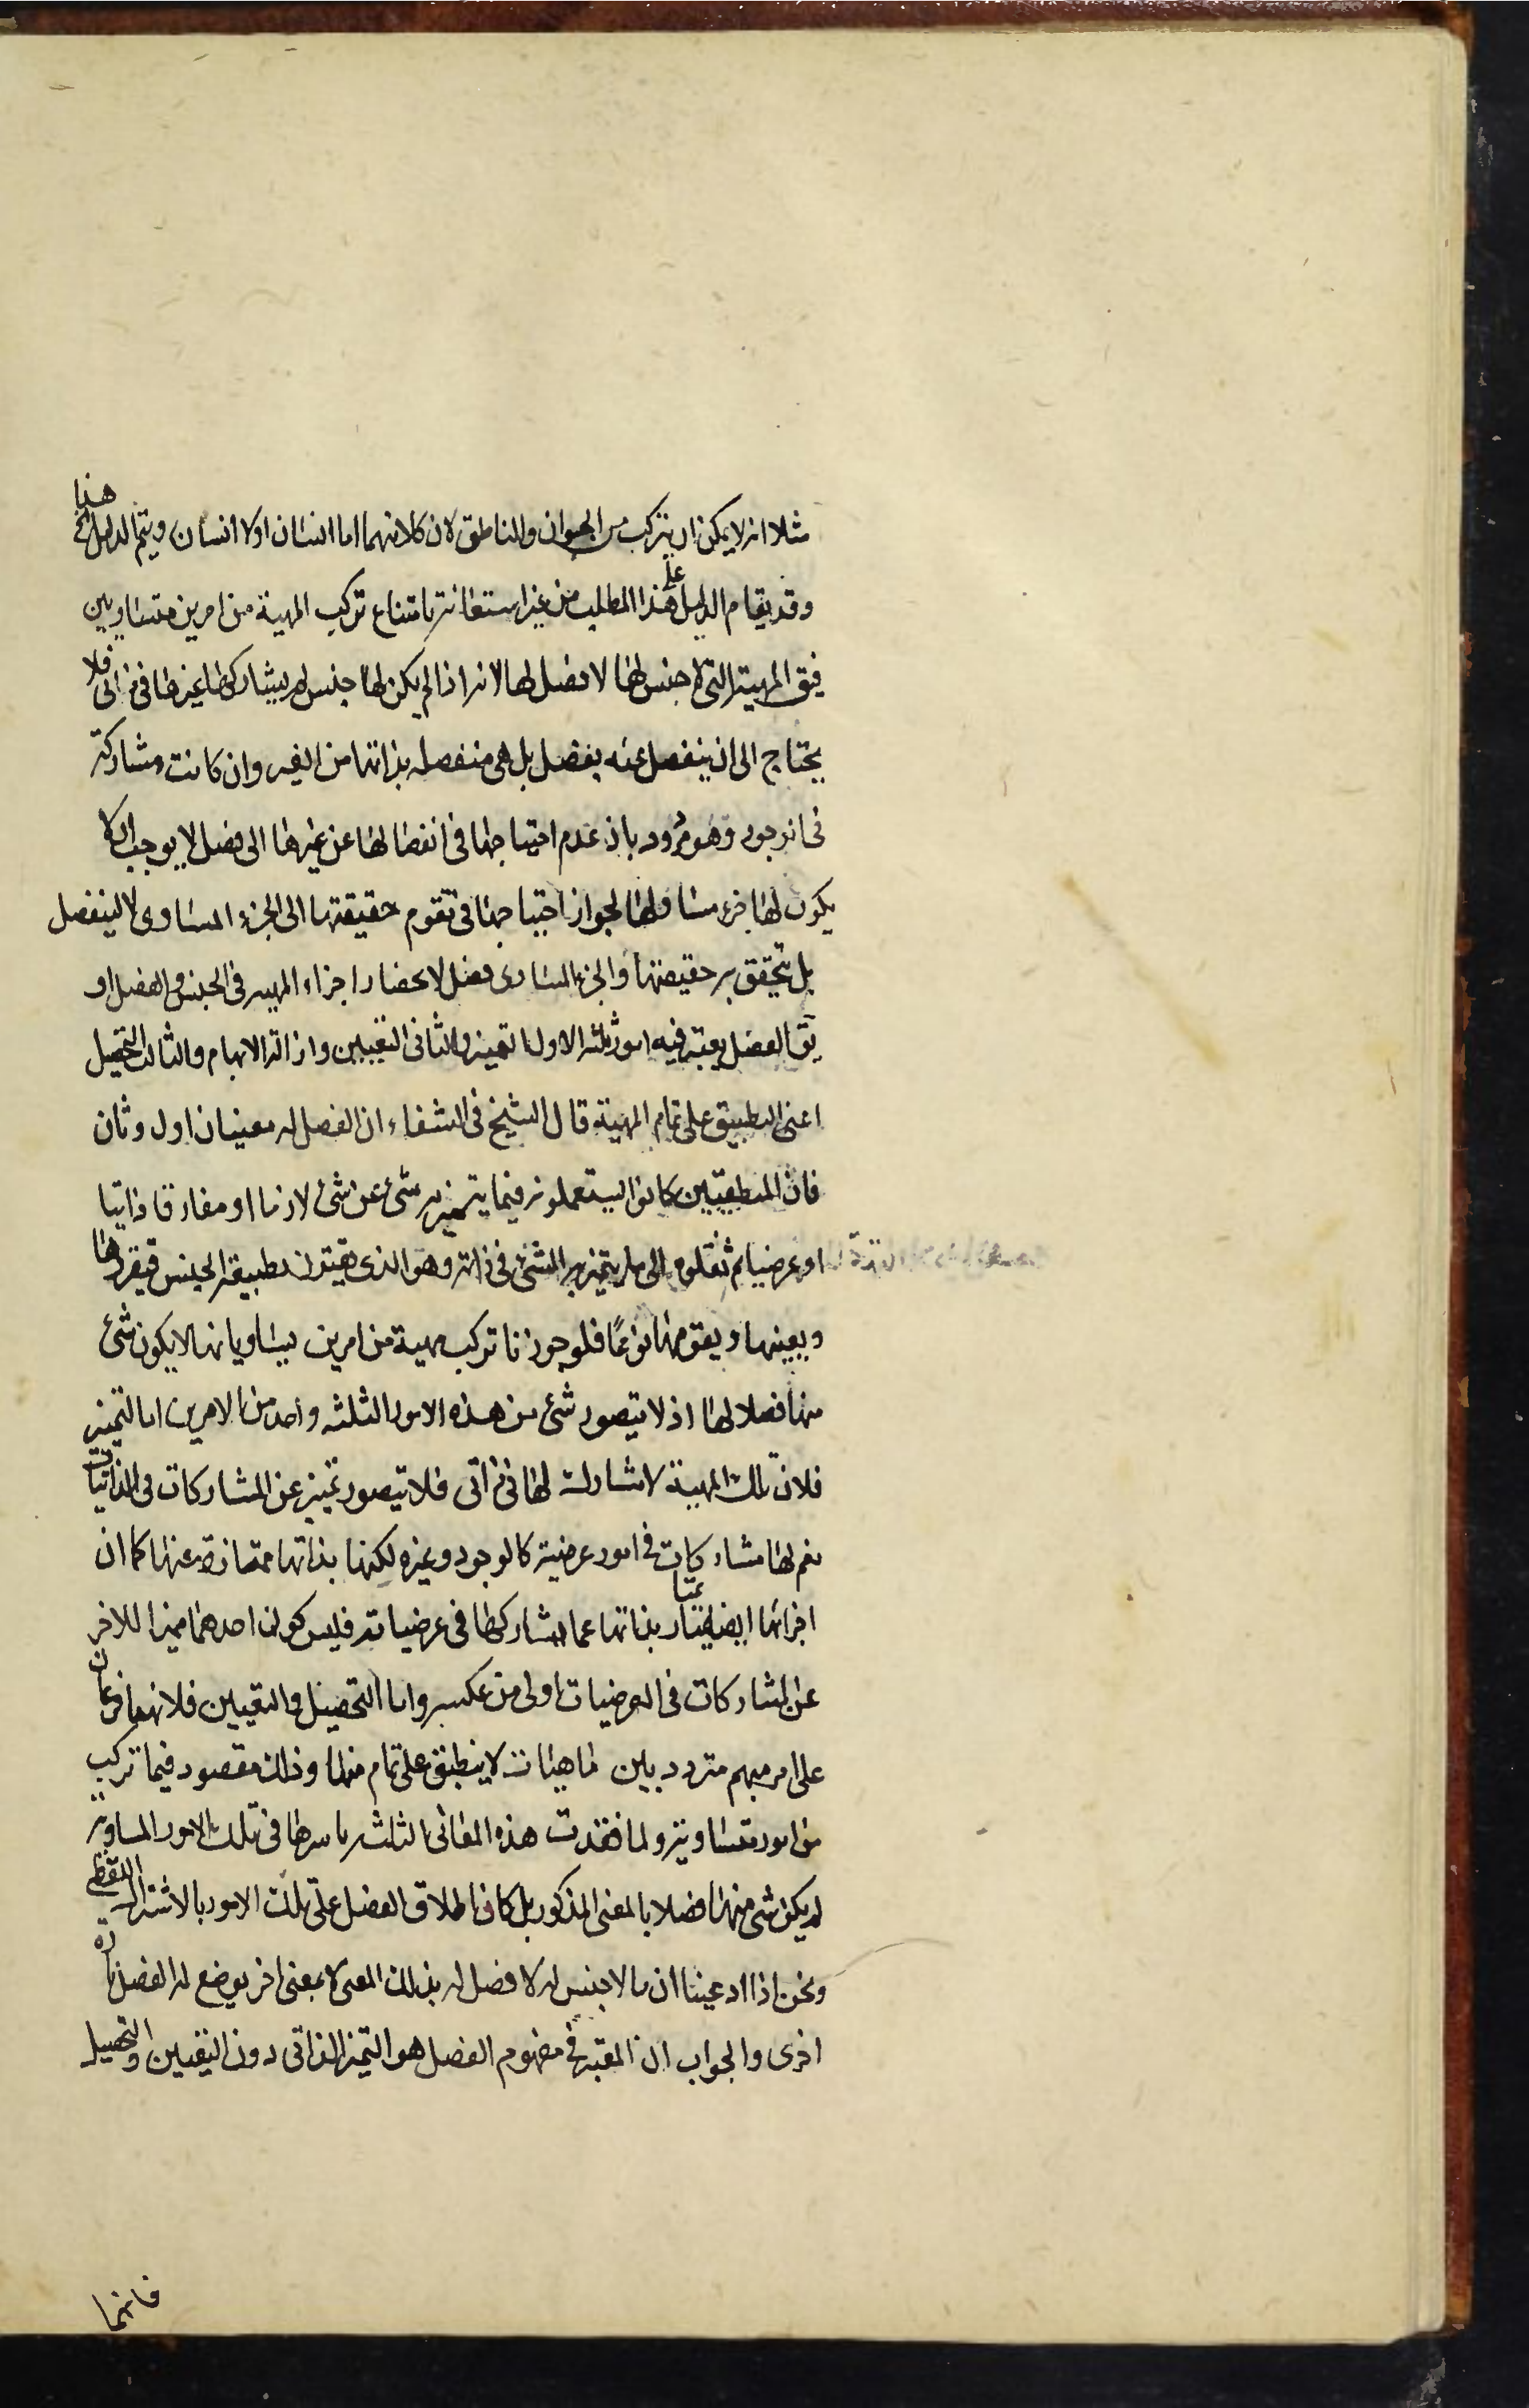 مثلا انه لا يمكن ان يتركب من الحيوان والناطق لان كلا منهما اما انسان او لا انسان ويتم الدليل الخ هذا
وقد يقام الدليل على هذا المطلب من غير استعانة بامتناع تركب المهية من امرين متساويين
فيق المهية التى لا جنس لها لا فصل لها لانه اذا لم يكن لها جنس لم يشاركها غيرها فى ذاتى فلا
يحتاج الى ان ينفصل عنه بفصل بل هى منفصله بذاتها من الغير وان كانت مشاركة
فى الوجود وهو مردود بان عدم احتياجها فى انفصالها عن غيرها الى فصل لا يوجب ان لا
يكون لها جزء مساو لها لجواز احتياجها فى تقوم حقيقتها الى الجزء المساوى لا لينفصل
بل تحقق به حقيقتها والجزء المساوى فصل لانحصار اجزاء المهيه فى الجنس والفصل او
يق الفصل يعتبر فيه امور ثلثه الاول التميز والثانى التعيين وازالة الابهام والثالث التحصيل
اعنى التطبيق على تمام المهية قال الشيخ فى الشفاء ان الفصل له معنيان اول وثان
فان المنطقيين كانوا يستعملونه فيما يتميز به شئ عن شئ لازما او مفارقا ذاتيا
او عرضيا ثم نقلوه الى ما يتميز به الشئ فى ذاته وهو الذى يقترن بطبيعة الجنس فيفرزها
ويعينها ويقومها نوعًا فلو جوزنا تركب مهية من امرين يساويانها لا يكون شئ
منها فصلا لها اذ لا يتصور شئ من هذه الامور الثلثه واحد من الامرين اما التميز
فلان تلك المهية لا مشارك لها فى ذاتى فلا يتصور تميز عن المشاركات فى الذاتيات
نعم لها مشاركات فى امور عرضية كالوجود وغيره لكنها بذاتها ممتازة عنها كما ان
اجزائها ايضا يمتاز بذاتها عما يشاركها فى عرضياته فليس كون احدهما مميزا للاخر
عن المشاركات فى العرضيات اولى من عكسه واما التحصيل والتعيين فلانهما فرعان
على امر مبهم متردد بين ماهيات لا ينطبق على تمام منها وذلك مقصود فيما تركب
من امور متساوية ولما فقدت هذه المعانى الثلثه باسرها فى تلك الامور المساويه
لم يكن شئ منها فصلا بالمعنى المذكور بل كان اطلاق الفصل على تلك الامور بالاشتراك اللفظى
ونحن اذا ادعينا ان ما لا جنس له لا فصل له بذلك المعنى لا بمعنى اخر يوضع له الفصل تارة
اخرى والجواب ان المعتبر فى مفهوم الفصل هو التميز الذاتى دون التعيين والتحصيل
فانهما